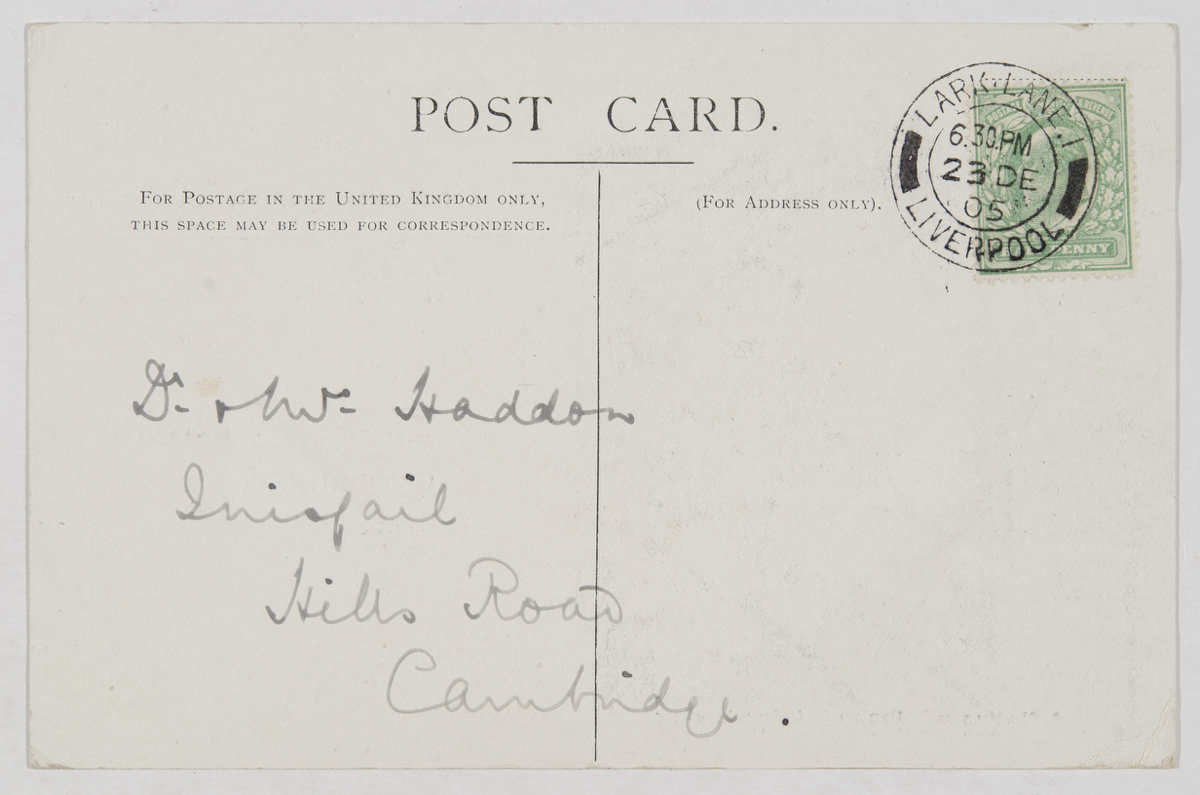 POST CARD.
FOR POSTAGE IN THE UNITED KINGDOM ONLY,
THIS SPACE MAY BE USED FOR CORRESPONDENCE.
(FOR ADDRESS ONLY).
LARK·LANE.1
6.30.PM
23 DE
05
LIVERPOOL
Dr. & Mrs. Haddon
Inisfail
Hills Road
Cambridge.